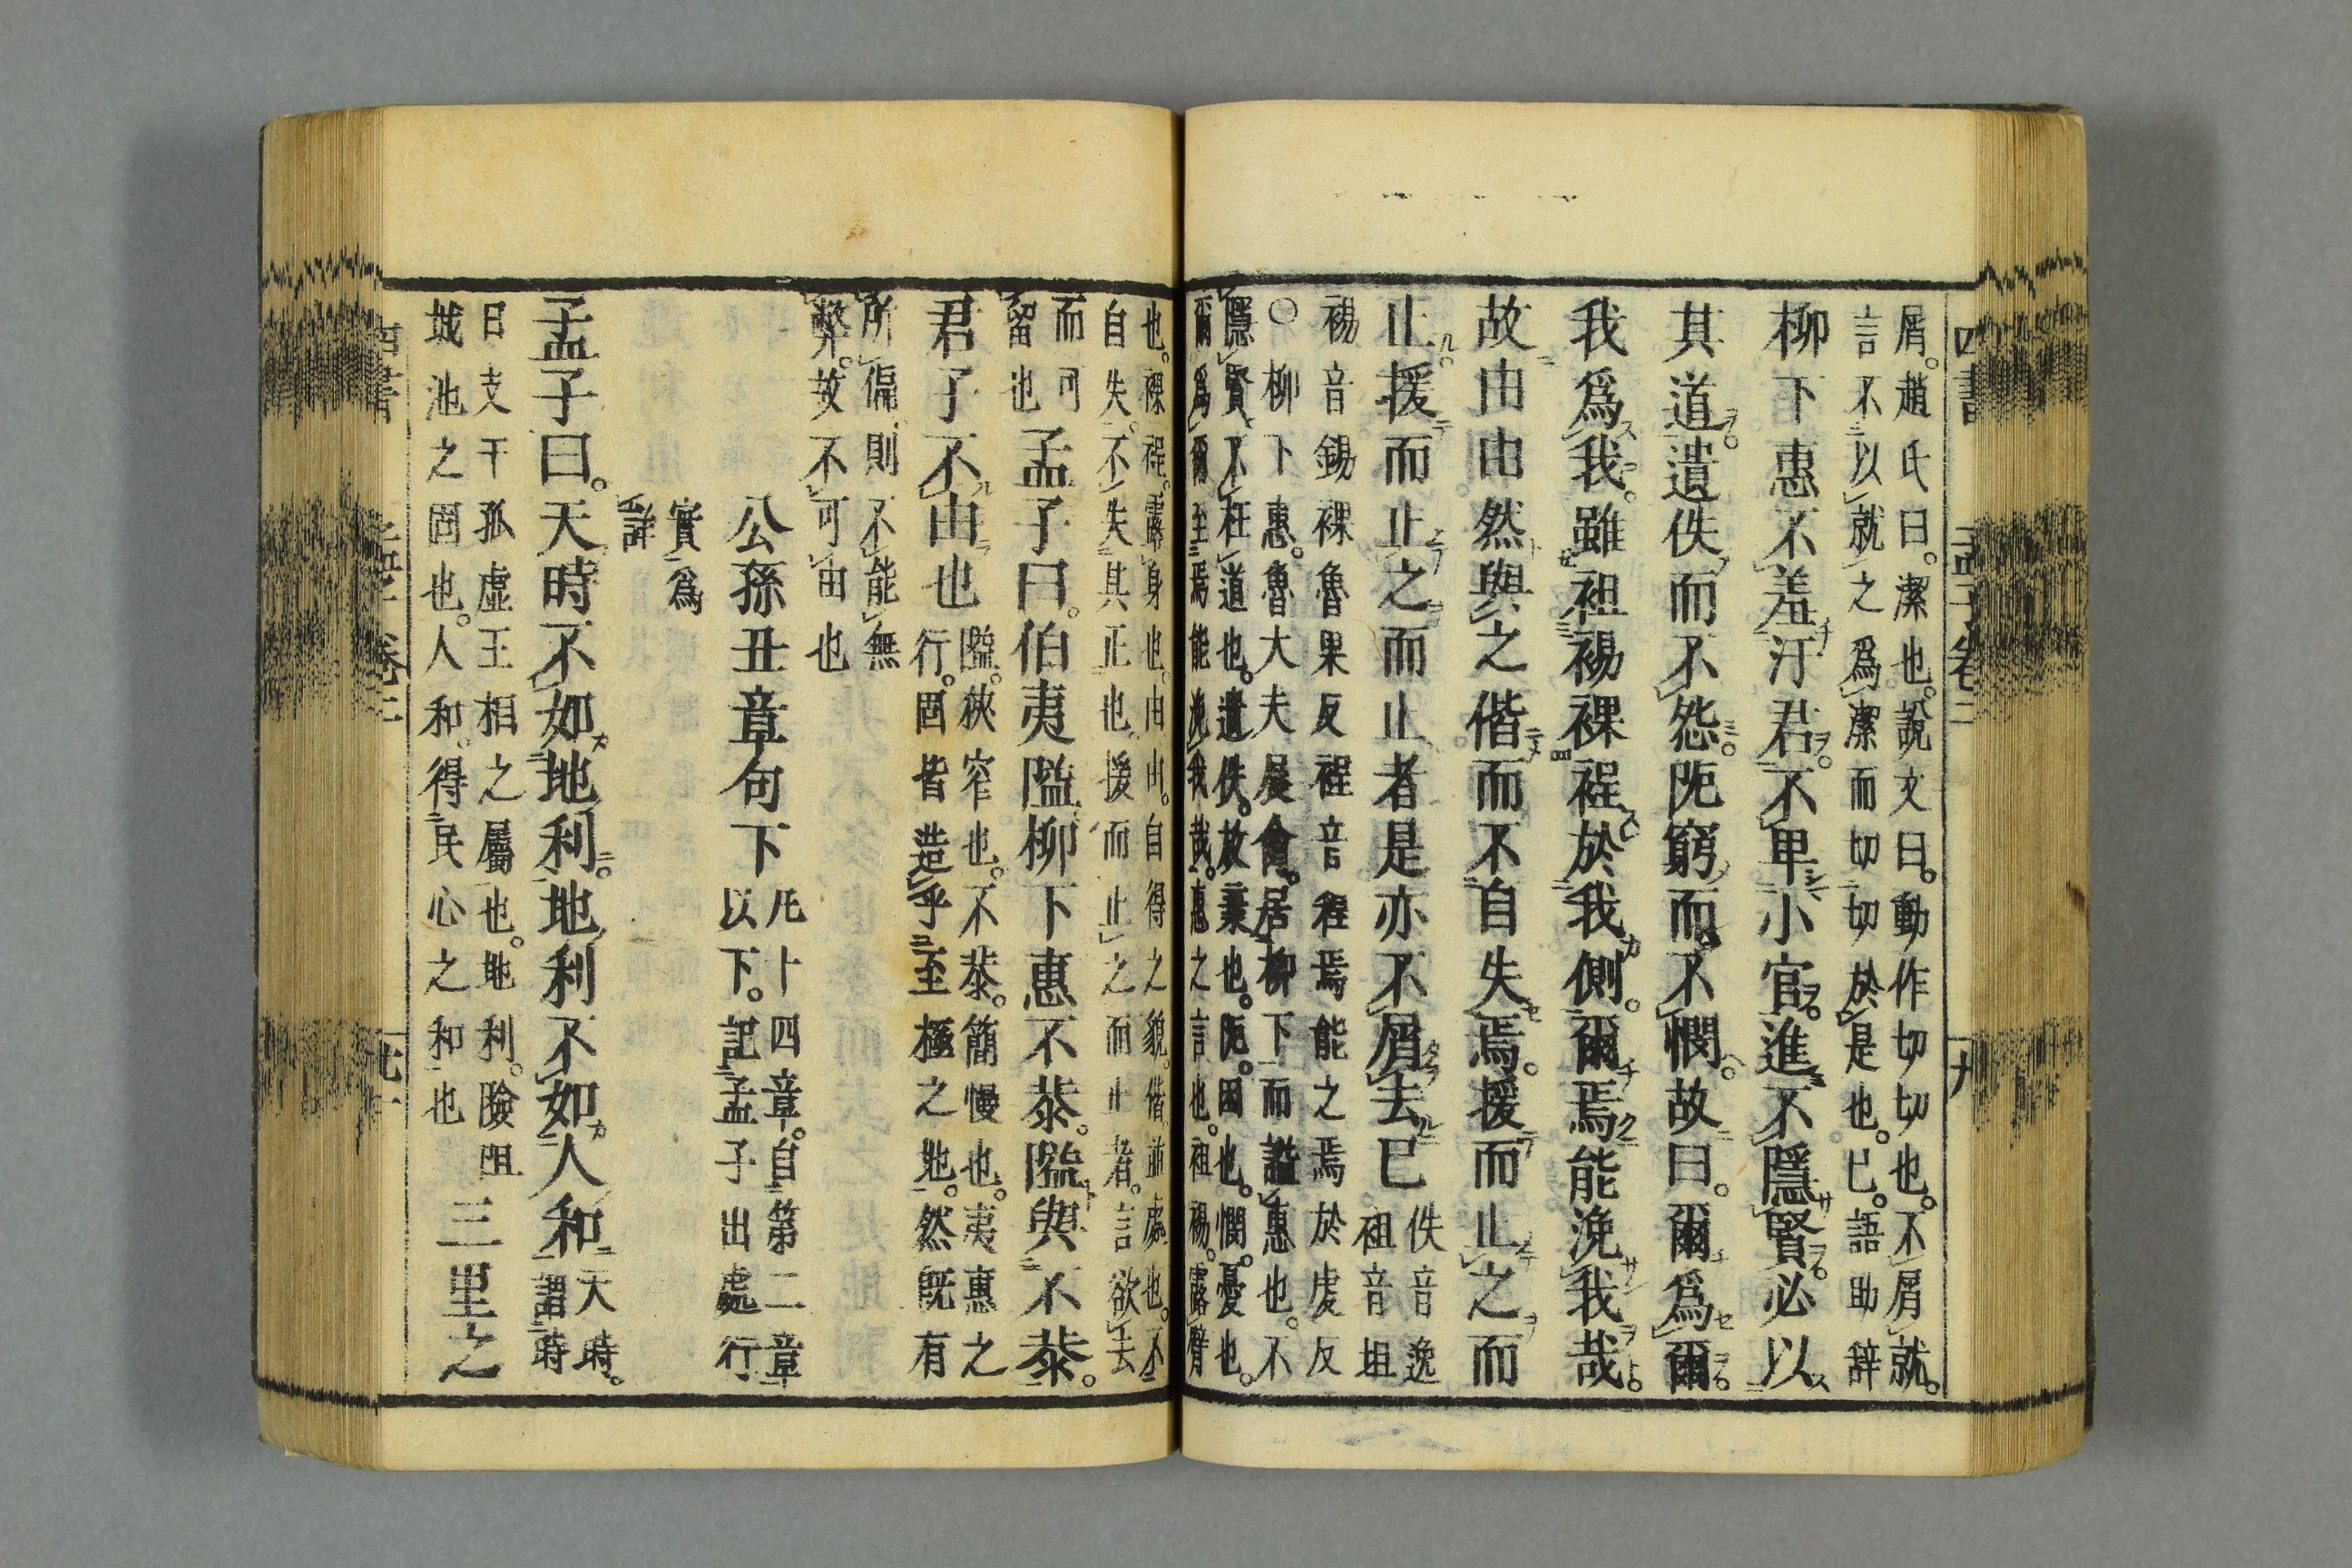 四書
孟子卷二
屑。趙氏曰。潔也。說文曰。動作切切也。不屑就。
言不以就之爲潔而切切於是也。已。語助辭
柳下惠不羞汙君。不卑小官。進不隱賢。必以
其道。遺佚而不怨。阨窮而不憫。故曰。爾爲爾。
我爲我。雖袒裼裸裎於我側。爾焉能浼我哉。
故由由然與之偕而不自失焉。援而止之而
止。援而止之而止者是亦不屑去已
佚音逸
袒音坦
裼音錫裸魯果反裎音程焉能之焉於虔反
○柳下惠。魯大夫展禽。居柳下而謚惠也。不
隱賢不枉道也。遺佚。放棄也。阨。困也。憫。憂也。
爾爲爾至焉能浼我哉。惠之言也。袒裼。露臂
也。裸裎。露身也。由由。自得之貌。偕。並處也。不
自失。不失其正也。援而止之而止者。言欲去
而可
留也
孟子曰。伯夷隘柳下惠不恭。隘與不恭。
君子不由也
隘。狹窄也。不恭。簡慢也。夷惠之
行。固皆造乎至極之地。然既有
所偏則不能無
弊。故不可由也
公孫丑章句下
凡十四章。自第二章
以下。記孟子出處行
實爲
詳
孟子曰。天時不如地利。地利不如人和
天時。
謂時
日支干孤虛王相之屬也。地利。險阻
城池之固也。人和。得民心之和也
三里之
四書
孟子 卷二